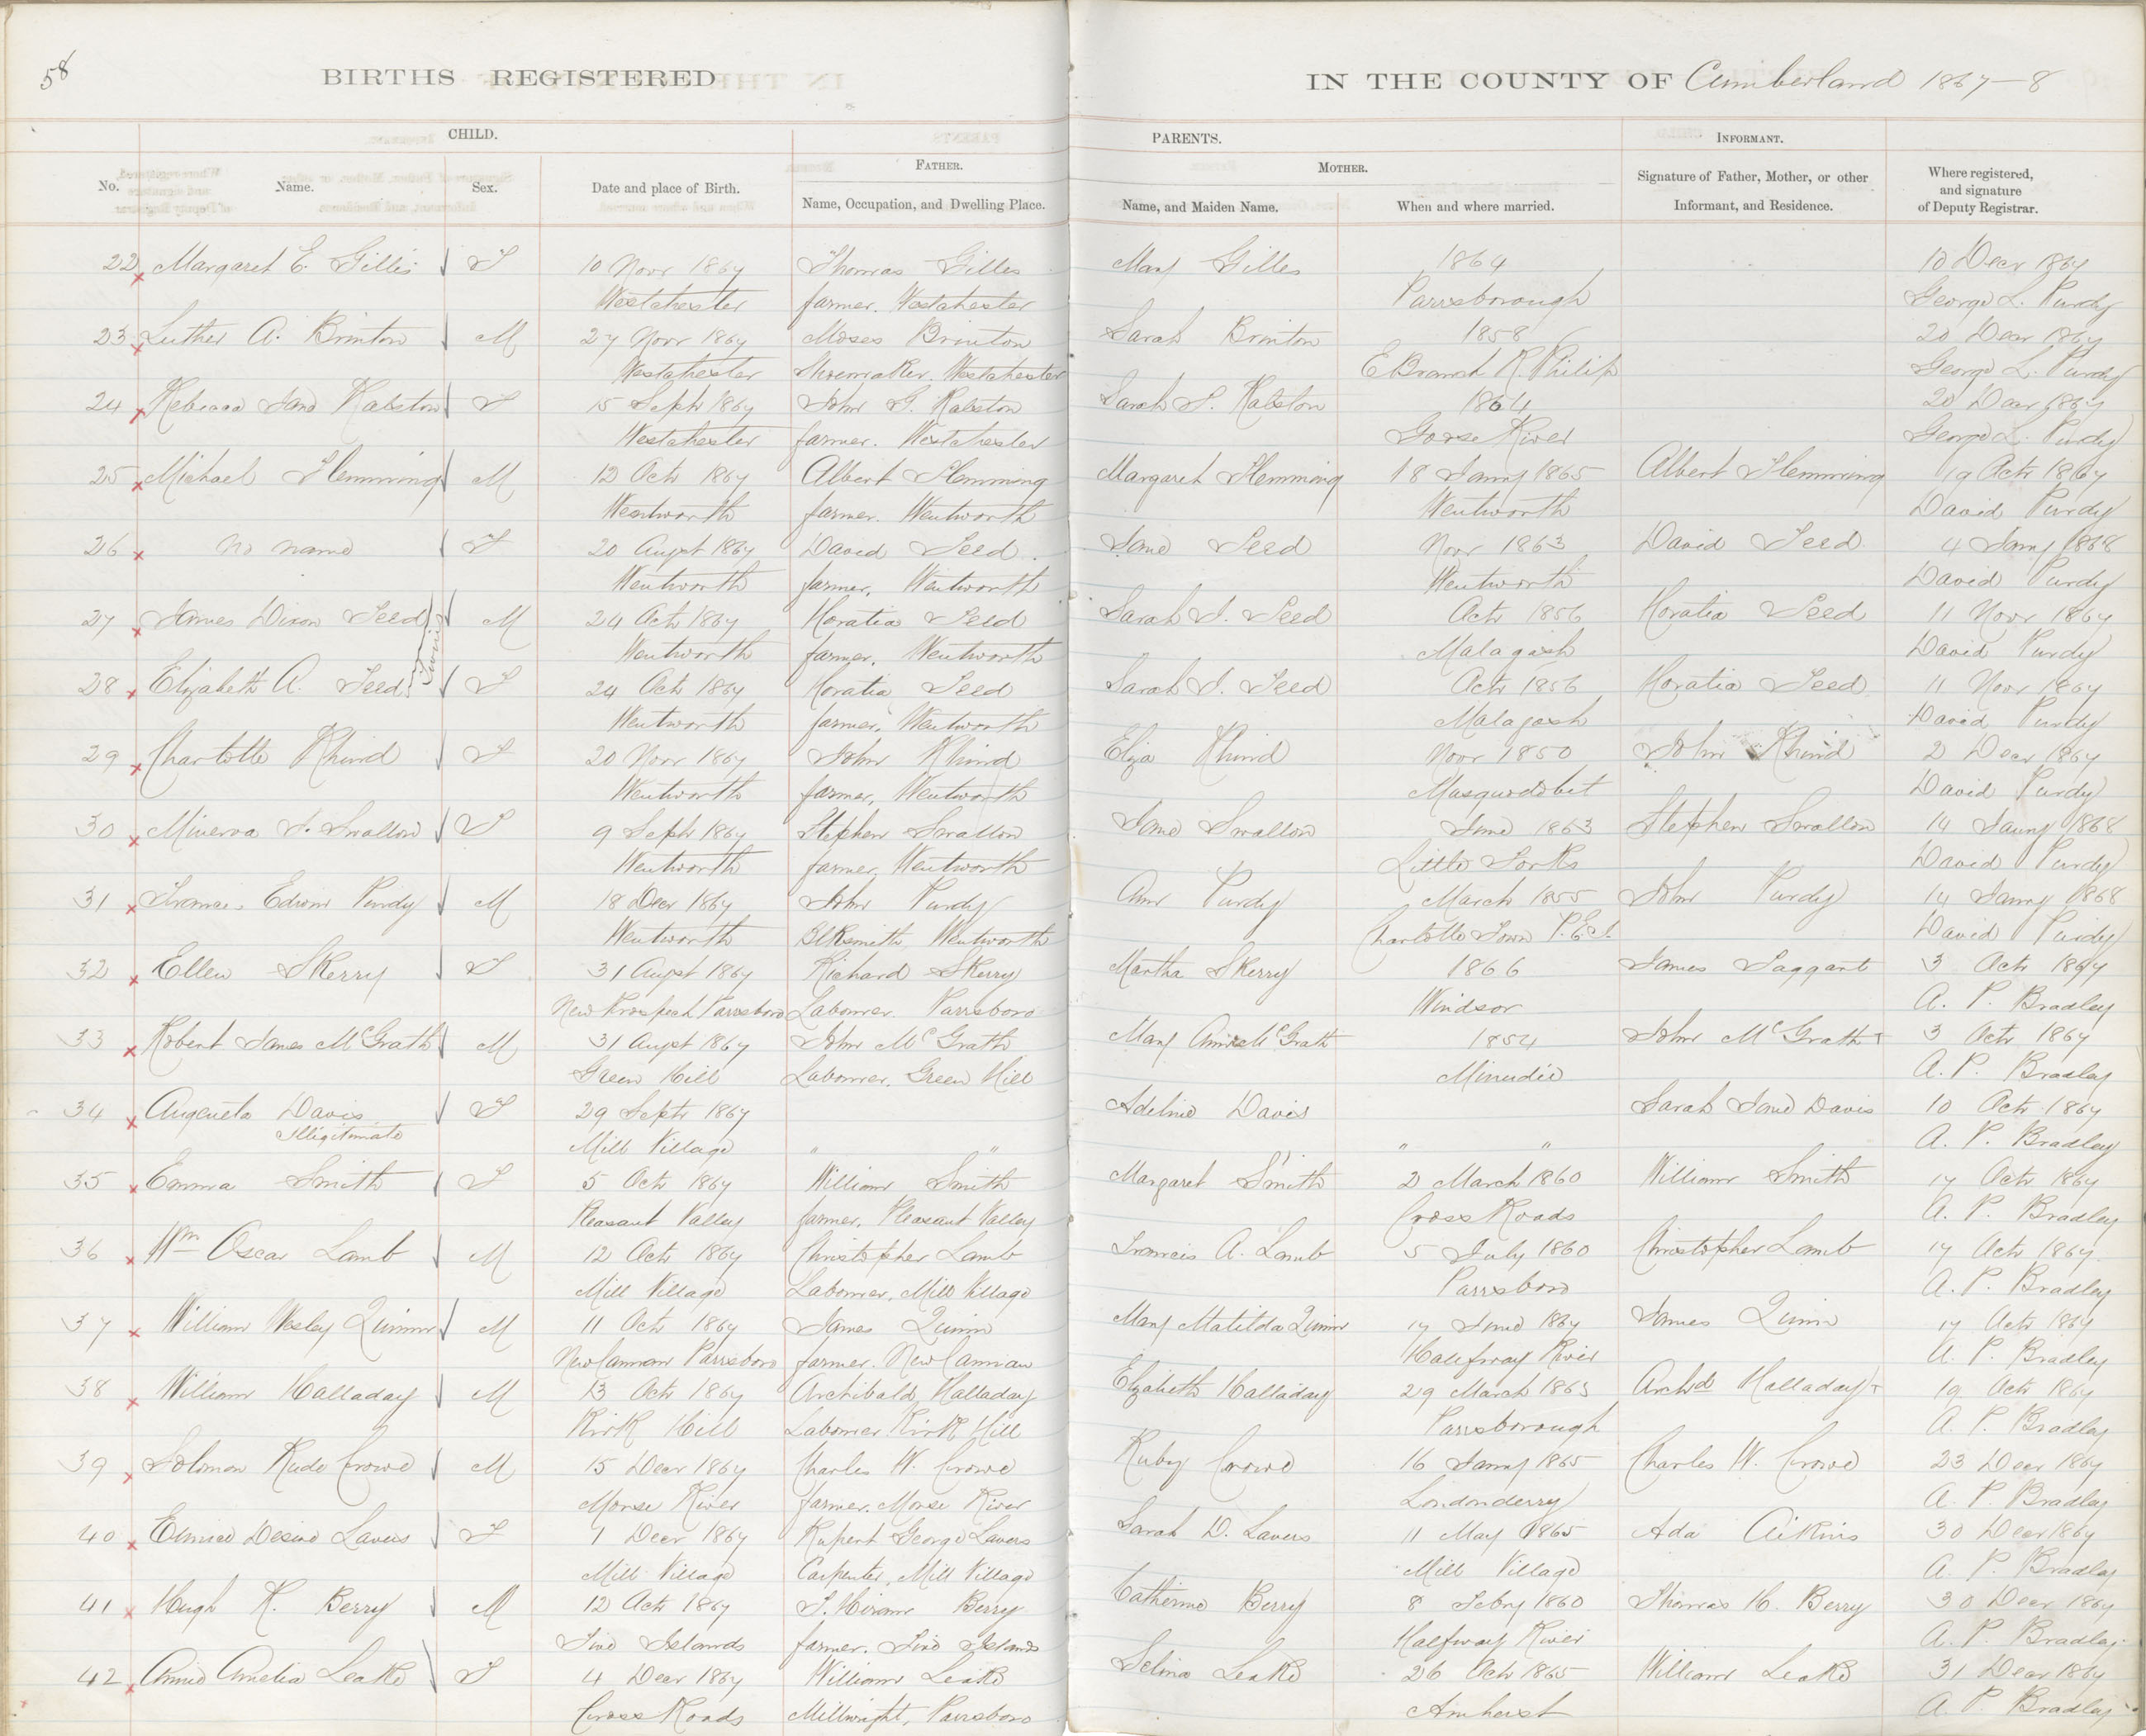 58
BIRTHS REGISTERED IN THE COUNTY OF Cumberland 1867-8
CHILD. PARENTS. INFORMANT.
No. Name. Sex. Date and place of Birth. FATHER. Name, Occupation, and Dwelling Place. MOTHER. Name, and Maiden Name. When and where married. Signature of Father, Mother, or other Informant, and Residence. Where registered, and signature of Deputy Registrar.
22 Margaret E. Gillis F 10 Novr 1867 Thomas Gilles Mary Gilles 1864 10 Decr 1867
Westchester farmer. Westchester Parrsborough George L. Purdy
23 Luther A. Brinton M 27 Novr 1867 Moses Brinton Sarah Brinton 1858 20 Decr 1867
Westchester Shoemaker. Westchester E Branch R. Philip George L. Purdy
24 Rebecca Jane Ralston F 15 Septr 1867 John G. Ralston Sarah S. Ralston 1864 20 Decr 1867
Westchester farmer. Westchester Goose River George L. Purdy
25 Michael Flemming M 12 Octr 1867 Albert Flemming Margaret Flemming 18 Jany 1865 Albert Flemming 19 Octr 1867
Wentworth farmer. Wentworth Wentworth David Purdy
26 no name F 20 Augst 1867 David Teed. Jane Teed Novr 1863 David Teed. 4 Jany 1868
Wentworth farmer, Wentworth Wentworth David Purdy
27 James Dixon Teed M 24 Octr 1867 Horatia Teed Sarah J. Teed Octr 1856 Horatia Teed 11 Novr 1867
Twins
Wentworth farmer, Wentworth Malagash David Purdy
28 Elizabeth A. Teed F 24 Octr 1867 Horatia Teed Sarah J. Teed Octr 1856 Horatia Teed 11 Novr 1867
Wentworth farmer, Wentworth Malagash David Purdy
29 Charlotte Rhind F 20 Novr 1867 John Rhind Eliza Rhind Novr 1850 John Rhind 2 Decr 1867
Wentworth farmer, Wentworth Musquodobit David Purdy
30 Minerva J. Swallow F 9 Septr 1867 Stephen Swallow Jane Swallow June 1863 Stephen Swallow 14 Jany 1868
Wentworth farmer, Wentworth Little Forks David Purdy
31 Thomas Edwin Purdy M 18 Decr 1867 John Purdy Ann Purdy March 1855 John Purdy 14 Jany 1868
Wentworth Blksmith, Wentworth Charlotte Town P.E.I. David Purdy
32 Ellen Skerry F 31 Augst 1867 Richard Skerry Martha Skerry 1866 James Taggart 3 Octr 1867
New Prospect Parrsboro Laborer. Parrsboro Windsor A. P. Bradley
33 Robert James McGrath M 31 Augst 1867 John McGrath Mary Ann McGrath 1854 John McGrath + 3 Octr 1867
Green Hill Laborer. Green Hill Minudie A. P. Bradley
34 Augusta Davis F 29 Septr 1867 Adeline Davis Sarah Jane Davis 10 Octr 1867
Illigitimate
Mill Village " " " " A. P. Bradley
35 Emma Smith F 5 Octr 1867 William Smith Margaret Smith 2 March 1860 William Smith 17 Octr 1867
Pleasant Valley farmer, Pleasant Valley Cross Roads A. P. Bradley
36 Wm Oscar Lamb M 12 Octr 1867 Christopher Lamb Francis A. Lamb 5 July 1860 Christopher Lamb 17 Octr 1867
Mill Village Laborer, Mill Village Parrsboro A. P. Bradley
37 William Wesley Quinn M 11 Octr 1867 James Quinn Mary Matilda Quinn 17 June 1867 James Quinn 17 Octr 1867
New Cannan Parrsboro farmer. New Cannan Halfway River A. P. Bradley
38 William Halladay M 13 Octr 1867 Archibald Halladay Elizabeth Halladay 29 March 1863 Archd Halladay + 19 Octr 1867
Kirk Hill Laborer Kirk Hill Parrsborough A. P. Bradley
39 Solomon Rude Crowe M 15 Decr 1867 Charles W. Crowe Ruby Crowe 16 Jany 1865 Charles W. Crowe 23 Decr 1867
Morse River farmer. Morse River Londonderry A. P. Bradley
40 Lavers F 1 Decr 1867 Rupert George Lavers Sarah D. Lavers 11 May 1865 Ada Aikins 30 Decr 1867
Mill Village Carpenter, Mill Village Mill Village A. P. Bradley
41 Hugh R. Berry M 12 Octr 1867 T. Hiram Berry Catherine Berry 8 Febry 1860 Thomas H. Berry 30 Decr 1867
Five Islands farmer. Five Islands Halfway River A. P. Bradley
42 Annie Amelia Leake F 4 Decr 1867 William Leake Selina Leake 26 Octr 1865 William Leake 31 Decr 1867
Cross Roads Millwright, Parrsboro Amherst A. P. Bradley